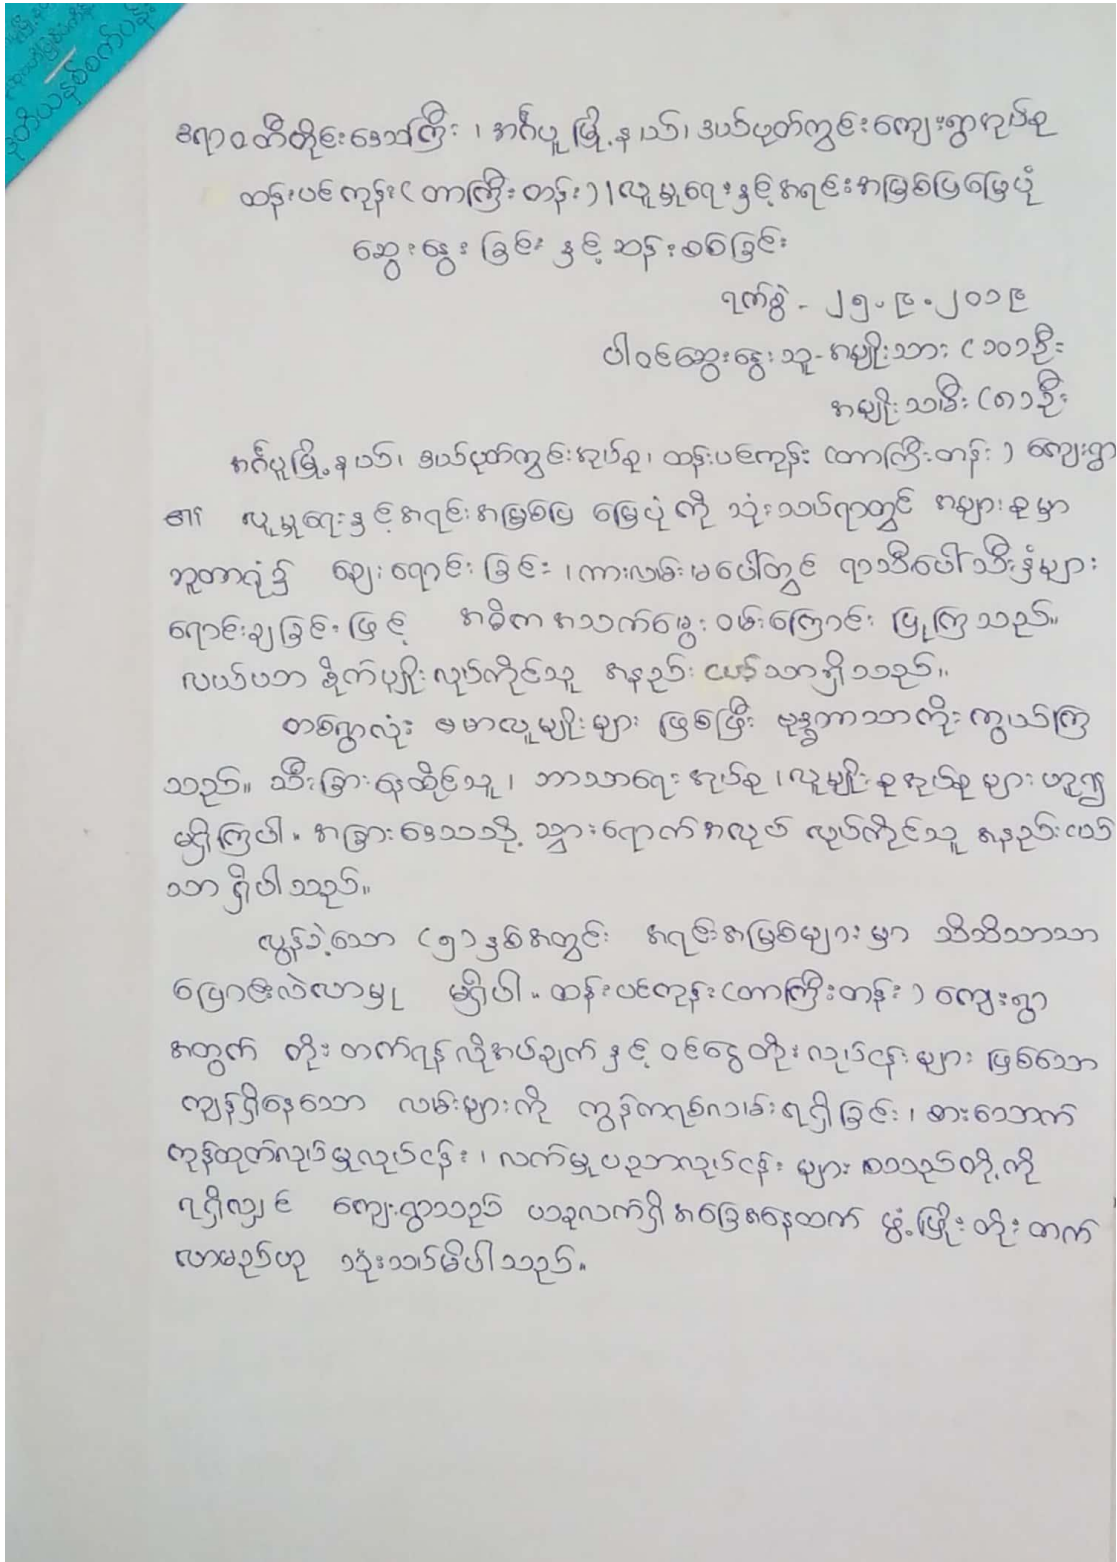 ဒုတိယနှစ်စက်ပန်း
ဧရာဝတီတိုင်းဒေသကြီး ၊ အင်္ဂပူမြို့နယ်၊ ဒယ်ပုတ်ကွင်းကျေးရွာအုပ်စု
ထန်းပင်ကုန်း(တာကြီးတန်း)၊လူမှုရေးနှင့်အရင်းအမြစ်ပြမြေပုံ
ဆွေးနွေးခြင်းနှင့်ဆန်းစစ်ခြင်း
ရက်စွဲ - ၂၅.၉.၂၀၁၉
ပါဝင်ဆွေးနွေးသူ-အမျိုးသား (၁၀)ဦး
အမျိုးသမီး (၈)ဦး
အင်္ဂပူမြို့နယ်၊ ဒယ်ပုတ်ကွင်းအုပ်စု၊ ထန်းပင်ကုန်း (တာကြီးတန်း) ကျေးရွာ
၏ လူမှုရေးနှင့်အရင်းအမြစ်ပြ မြေပုံကို သုံးသပ်ရာတွင် အများစုမှာ
ဘူတာရုံ၌ ဈေးရောင်းခြင်း ၊ကားလမ်းမပေါ်တွင် ရာသီပေါ်သီးနှံများ
ရောင်းချခြင်းဖြင့် အဓိကအသက်မွေးဝမ်းကြောင်း ပြုကြသည်။
လယ်ယာ စိုက်ပျိုးလုပ်ကိုင်သူ အနည်းငယ်သာရှိသည်။
တစ်ရွာလုံး ဗမာလူမျိုးများ ဖြစ်ပြီး ဗုဒ္ဓဘာသာကိုးကွယ်ကြ
သည်။ သီးခြားနေထိုင်သူ၊ ဘာသာရေးအုပ်စု ၊လူမျိုးစုအုပ်စုများဟူ၍
မရှိကြပါ။ အခြားဒေသသို့ သွားရောက်အလုပ် လုပ်ကိုင်သူ အနည်းငယ်
သာရှိပါသည်။
လွန်ခဲ့သော (၅)နှစ်အတွင်း အရင်းအမြစ်များမှာ သိသိသာသာ
ပြောင်းလဲလာမှု မရှိပါ။ ထန်းပင်ကုန်း(တာကြီးတန်း) ကျေးရွာ
အတွက် တိုးတက်ရန်လိုအပ်ချက်နှင့် ဝင်ငွေတိုးလုပ်ငန်းများ ဖြစ်သော
ကျန်ရှိနေသော လမ်းများကို ကွန်ကရစ်လမ်းရရှိခြင်း ၊ စားသောက်
ကုန်ထုတ်လုပ်မှုလုပ်ငန်း ၊ လက်မှုပညာလုပ်ငန်း များ စသည်တို့ကို
ရရှိလျှင် ကျေးရွာသည် ယခုလက်ရှိအခြေအနေထက် ဖွံ့ဖြိုးတိုးတက်
လာမည်ဟု သုံးသပ်မိပါသည်။